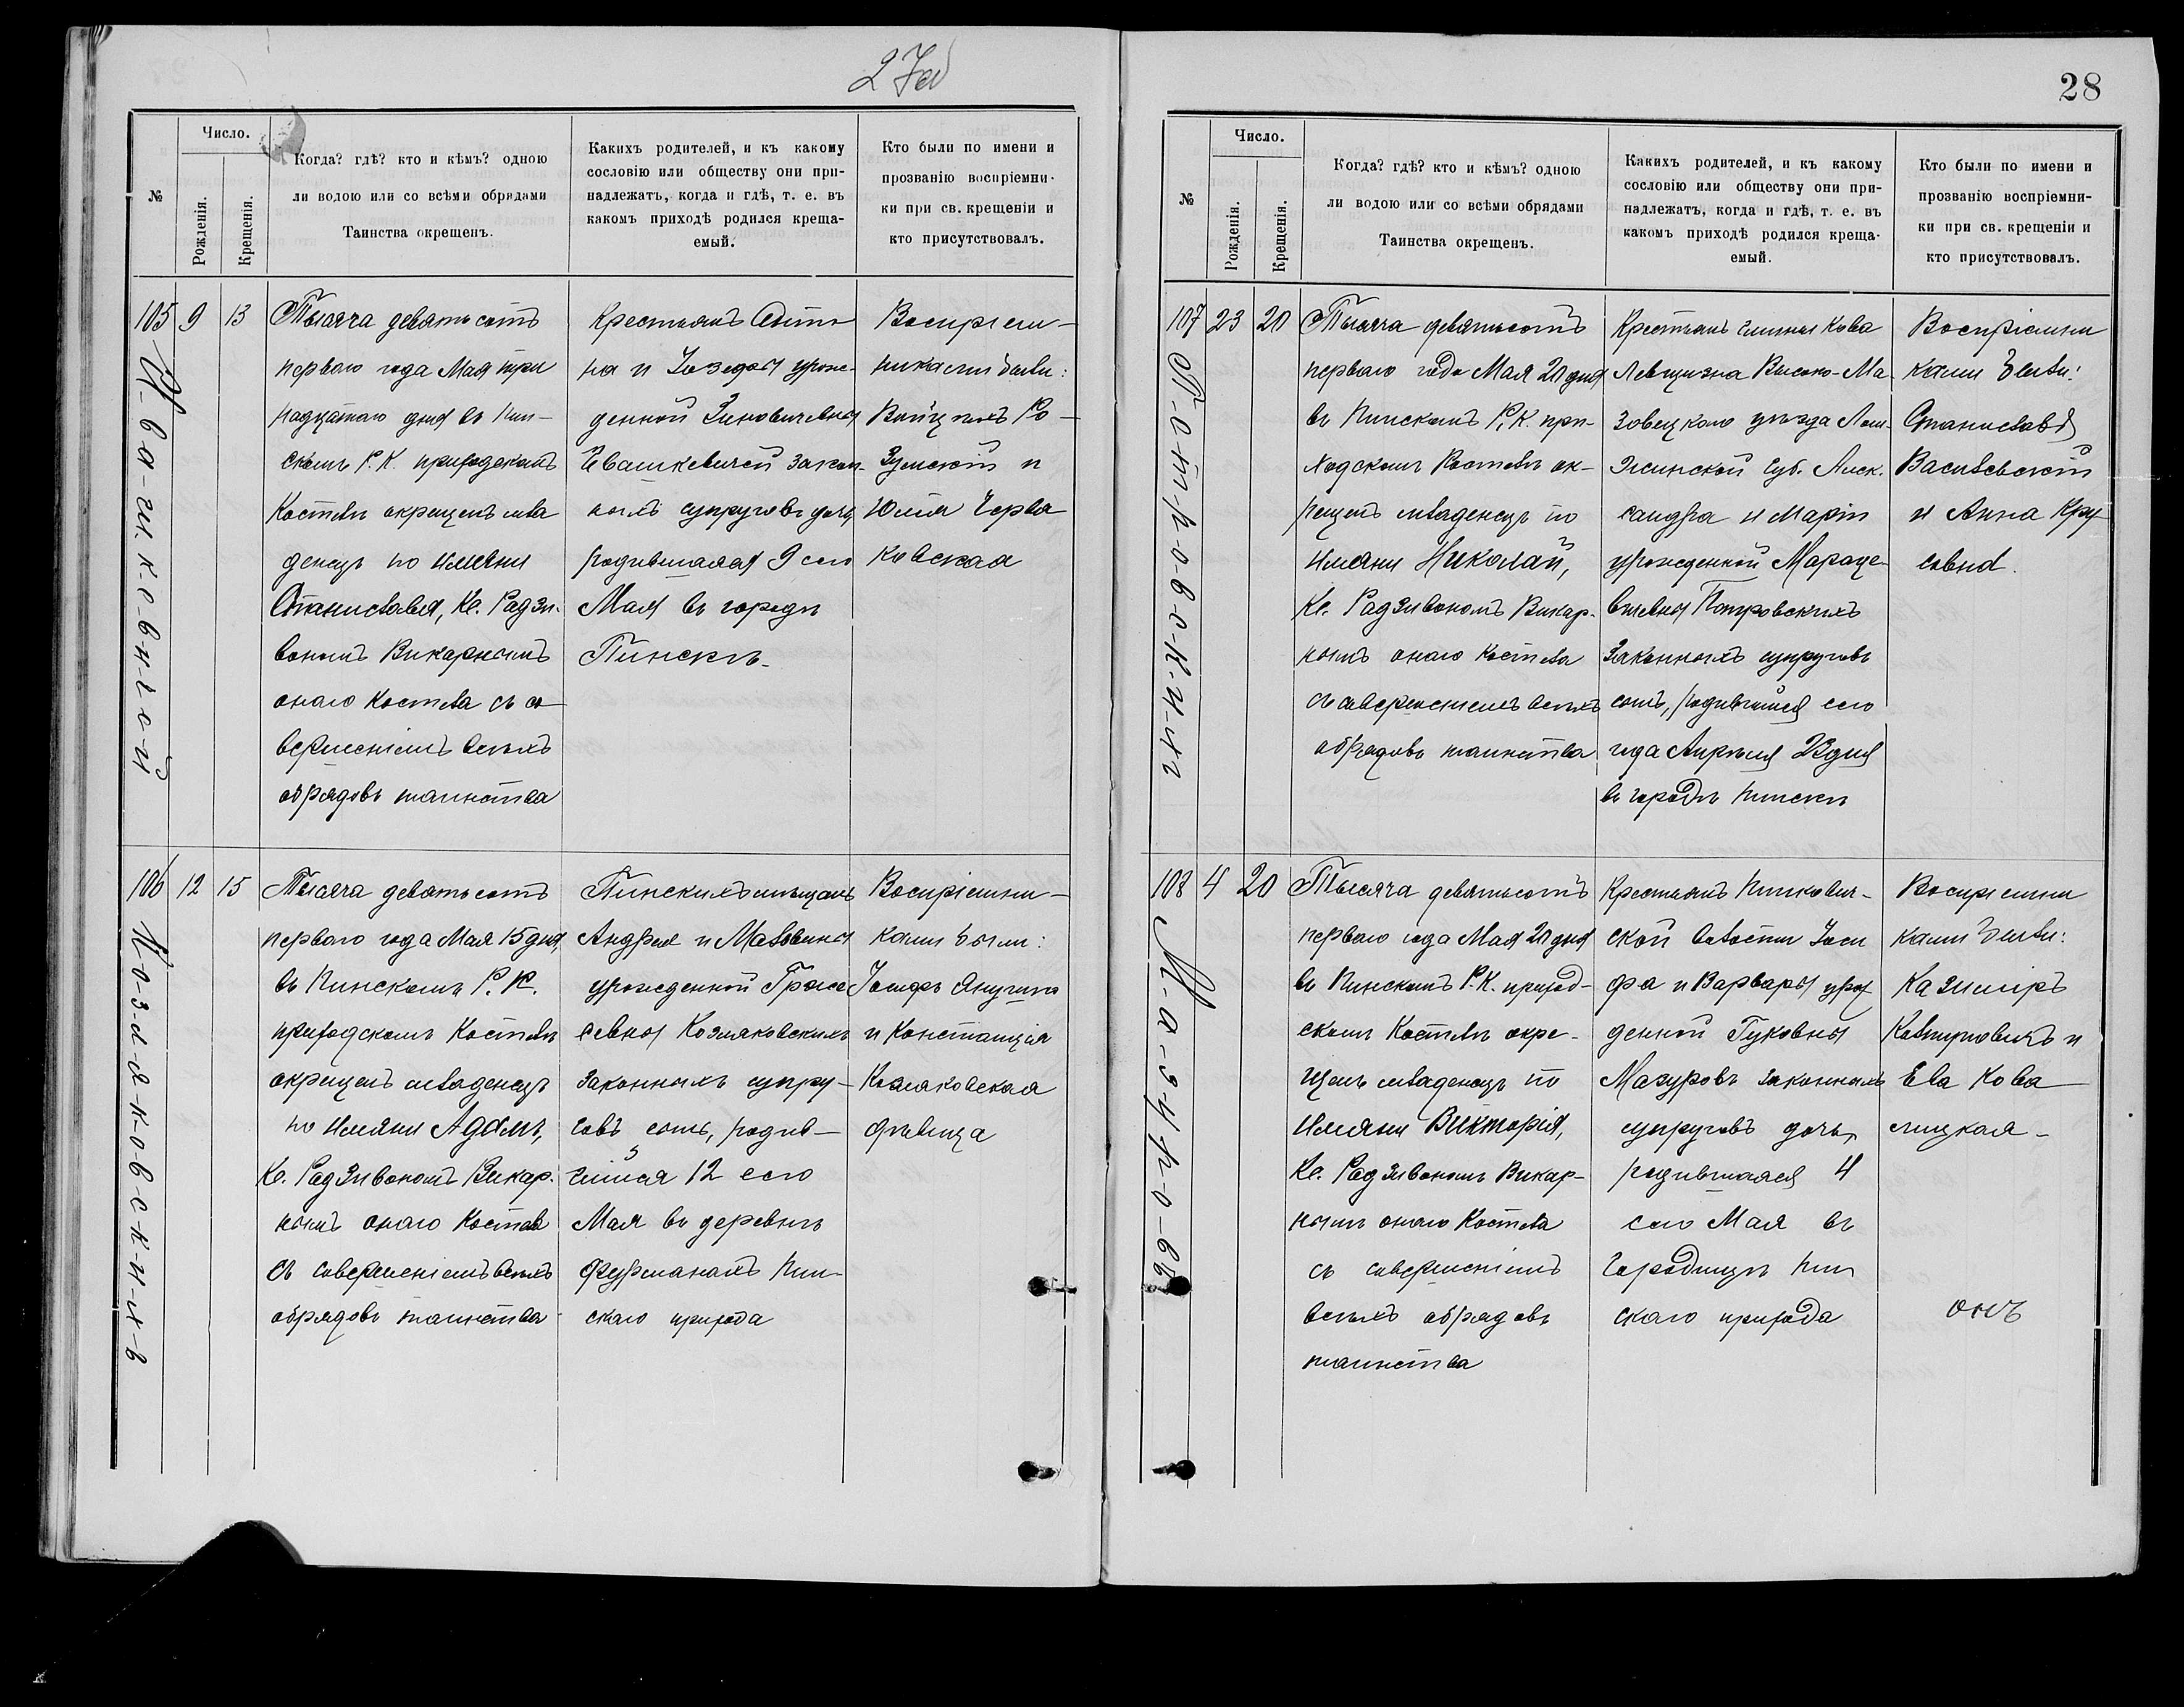 27об
28
Число.
№
Рожденія.
Крещенія.
Когда? гдѣ? кто и кѣмъ? одною
ли водою или со всѣми обрядами
Таинства окрещенъ.
Какихъ родителей, и къ какому
сословію или обществу они при-
надлежатъ, когда и гдѣ, т. е. въ
какомъ приходѣ родился креща-
емый.
Кто были по имени и
прозванію воспріемни-
ки при св. крещеніи и
кто присутствовалъ.
105 9 13
Тысяча девятьсотъ
перваго года Мая три
надцатаго дня въ Пин-
скомъ Р. К. приходскомъ
Костелѣ окрещенъ мла
денецъ по имяни
Станиславъ, Кс. Радзи-
вономъ Викарнымъ
онаго Костела съ со
вершеніемъ всѣхъ
обрядовъ таинства
Крестьянъ Анто
на и Іозефы урож-
денной Зиновичевны
Ивашкевичей закон-
ныхъ супруговъ дочь
родившаяся 9 сего
Мая въ городѣ
Пинскѣ.
Воспріем-
никами были:
Войцѣхъ Ро-
Зумскій и
Юлія Черва
ковская
106 12 15
К-о-з-л-я-к-о-в-с-к-и-х-ъ
Тысяча девятьсотъ
перваго года Мая 15 дня,
въ Пинскомъ Р. К.
приходскомъ Костелѣ
окрещенъ младенецъ
по имяни Адамъ,
Кс. Радзивономъ Викар-
нымъ онаго Костела
съ совершеніемъ всѣхъ
обрядовъ таинства
Пинскихъ мѣщанъ
Андрея и Мальвины
урожденной
Козляковскихъ
законныхъ супру-
говъ сынъ, родив-
шійся 12 сего
Мая въ деревнѣ
Фурманахъ Пин-
скаго прихода
Воспріемни-
ками были:
Іосифъ
и Констанція
Козляковская
дѣвица
Число.
№
Рожденія.
Крещенія.
Когда? гдѣ? кто и кѣмъ? одною
ли водою или со всѣми обрядами
Таинства окрещенъ.
Какихъ родителей, и къ какому
сословію или обществу они при-
надлежатъ, когда и гдѣ, т. е. въ
какомъ приходѣ родился креща-
емый.
Кто были по имени и
прозванію воспріемни-
ки при св. крещеніи и
кто присутствовалъ.
107 23 20
П-о-т-р-о-в-с-к-и-х-ъ
Тысяча девятьсотъ
перваго года Мая 20 дня
въ Пинскомъ Р. К. при-
ходскомъ Костелѣ ок-
рещенъ младенецъ по
имяни Николай,
Кс. Радзивономъ Викар-
нымъ онаго Костела
съ совершеніемъ всѣхъ
обрядовъ таинства
Крестьянъ гмины Кова
Левщизна Высоко-Ма
зовецкаго уѣзда Лом-
жинской Губ. Алек-
сандра и Маріи
урожденной Мараце-
вичевны Потровскихъ
законныхъ супруговъ
сынъ, родившійся сего
года Апрѣля 23 дня
въ городѣ Пинскѣ
Воспріемни
ками были:
Станиславъ
Васильевскій
и Анна
108 4 20
М-а-з-у-р-о-въ
Тысяча девятьсотъ
перваго года Мая 20 дня
въ Пинскомъ Р. К. приход-
скомъ Костелѣ окре-
щенъ младенецъ по
имяни Викторія,
Кс. Радзивономъ Викар-
нымъ онаго Костела
съ совершеніемъ
всѣхъ обрядовъ
таинства
Крестьянъ Пинкович-
ской волости Іоси
фа и Варвары урож
денной Гуковны
Мазуровъ законныхъ
супруговъ дочь,
родившаяся 4
сего Мая въ
Городищѣ Пин
скаго прихода
Воспріемни
ками были:
Казиміръ
и
Ева Кова
лицкая